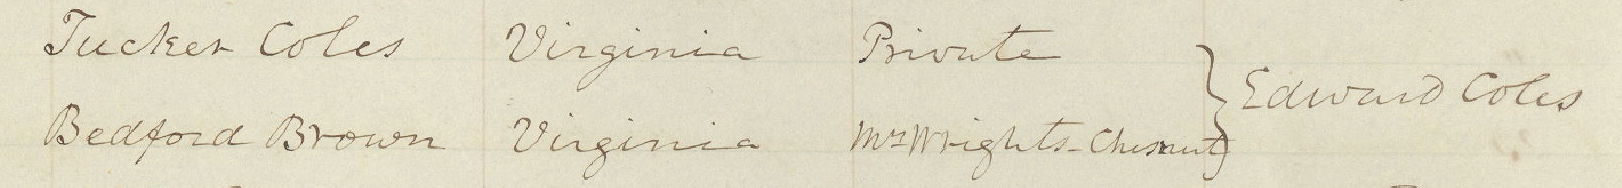 Tucker Coles Virginia Private
Edward Coles
Bedford Brown Virginia Mrs Wrights - Chesnut